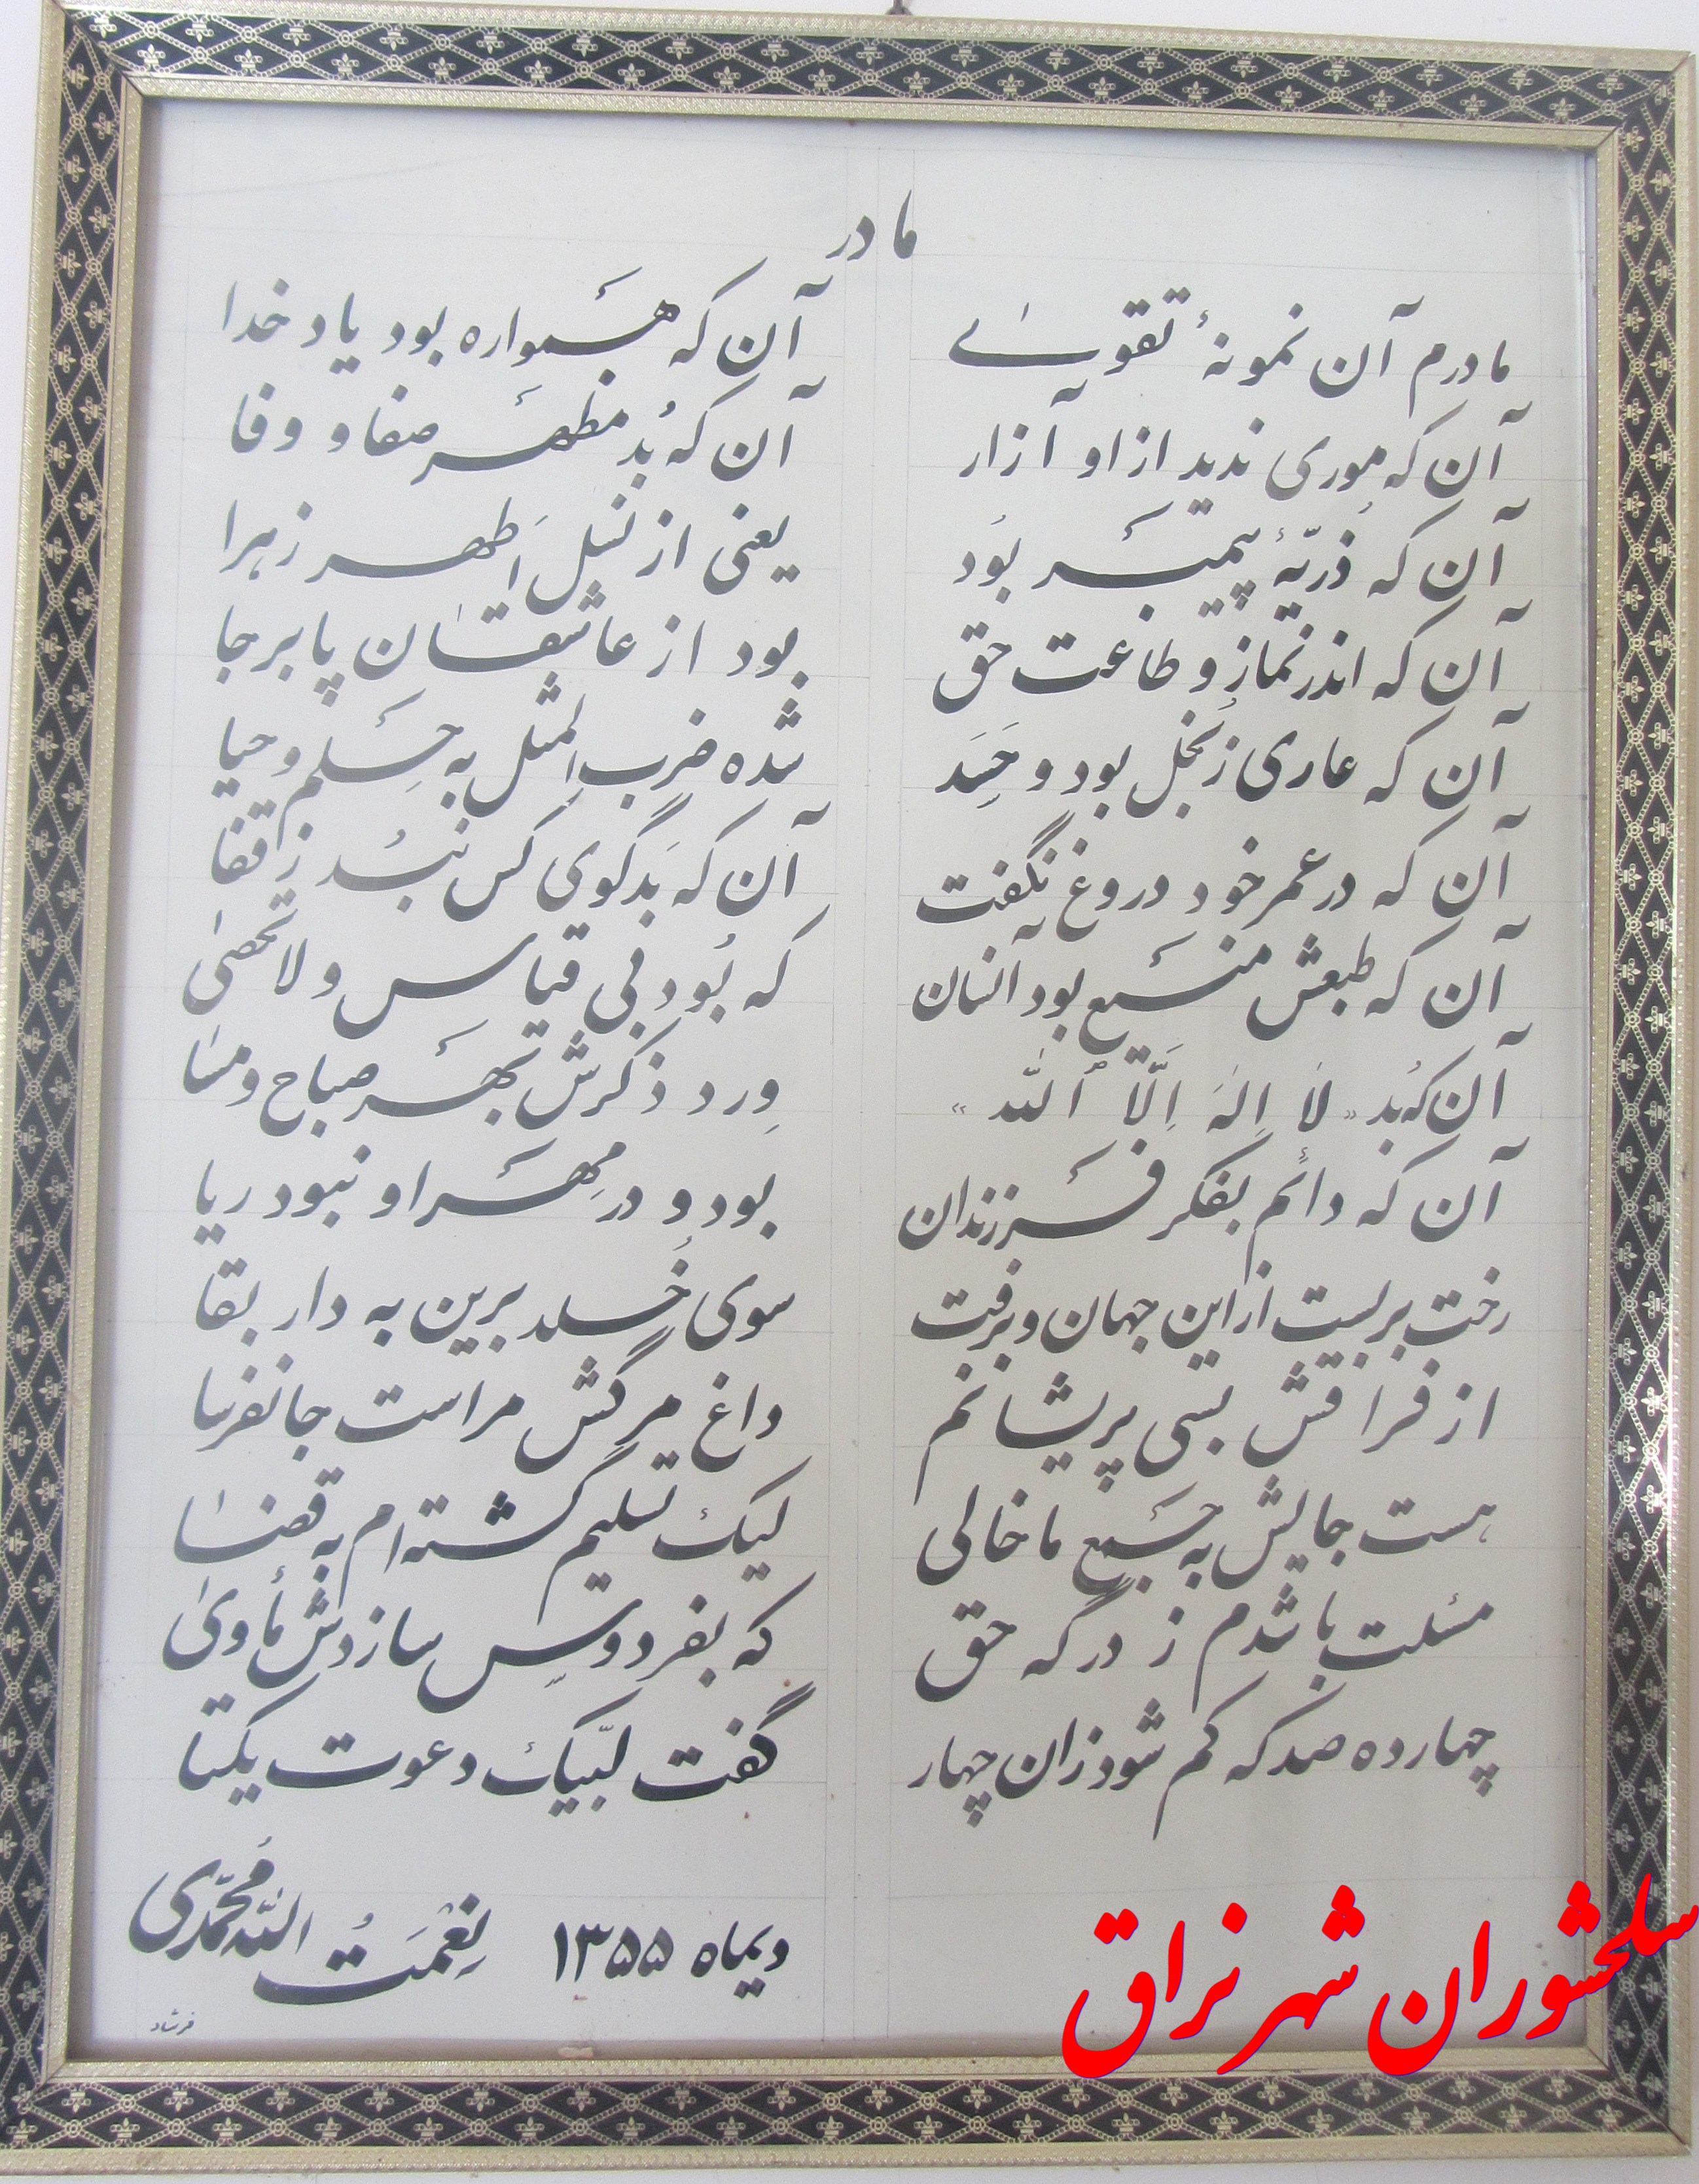 مادر
مادرم آن نمونهٔ تقویٰ آن که همواره بود یاد خدا
آن که موری ندید از او آزار آن که بُد مظهر صفا و وفا
آن که ذُرّیهٔ پیمبر بُود یعنی از نسل اَطهر زهرا
آن که اندر نماز و طاعت حق بود از عاشقان پابرجا
آن که عاری ز بُخل بود و حَسَد شده ضرب‌المثل به حِلم و حیا
آن که در عمر خود دروغ نگفت آن که بَدگوی کس نبُد ز قفا
آن که طبعش منیع بود آنسان که بُود بی قیاس و لاتحصیٰ
آن که بُد «لا اِلهَ اِلَّا الله» وِرد ذکرش بهر صباح و مسا
آن که دائم بفکر فرزندان بود و در مِهر او نبود ریا
رخت بربست از این جهان و برفت سوی خُلد برین به دار بقا
از فراقش بسی پریشانم داغ مرگش مراست جانفرسا
هست جایش به جمع ما خالی لیک تسلیم گشته‌ام به قضا
مسئلت باشدم ز درگه حق که بفردوس سازدش مأویٰ
چهارده صد که کم شود زان چهار گفت لبّیک دعوت یکتا
دیماه ۱۳۵۵ نِعْمَتُ الله مُحمّدی
فرشاد
سلحشوران شهر نراق